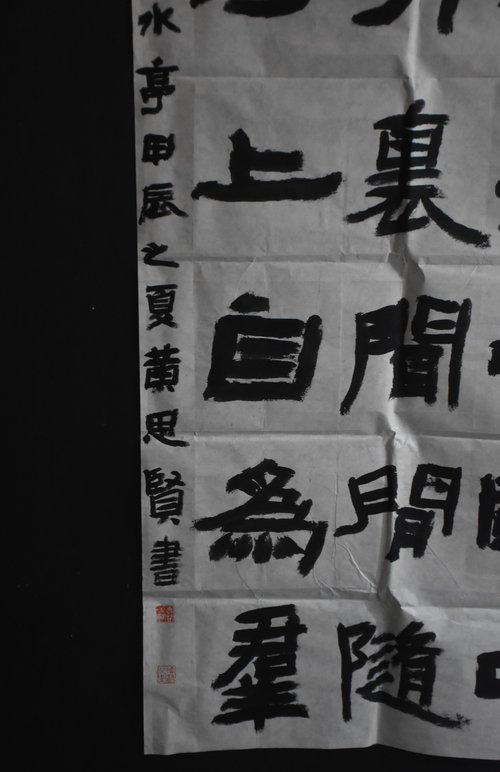 裏間閒隨
上自為羣
水亭甲辰之夏黃思賢書